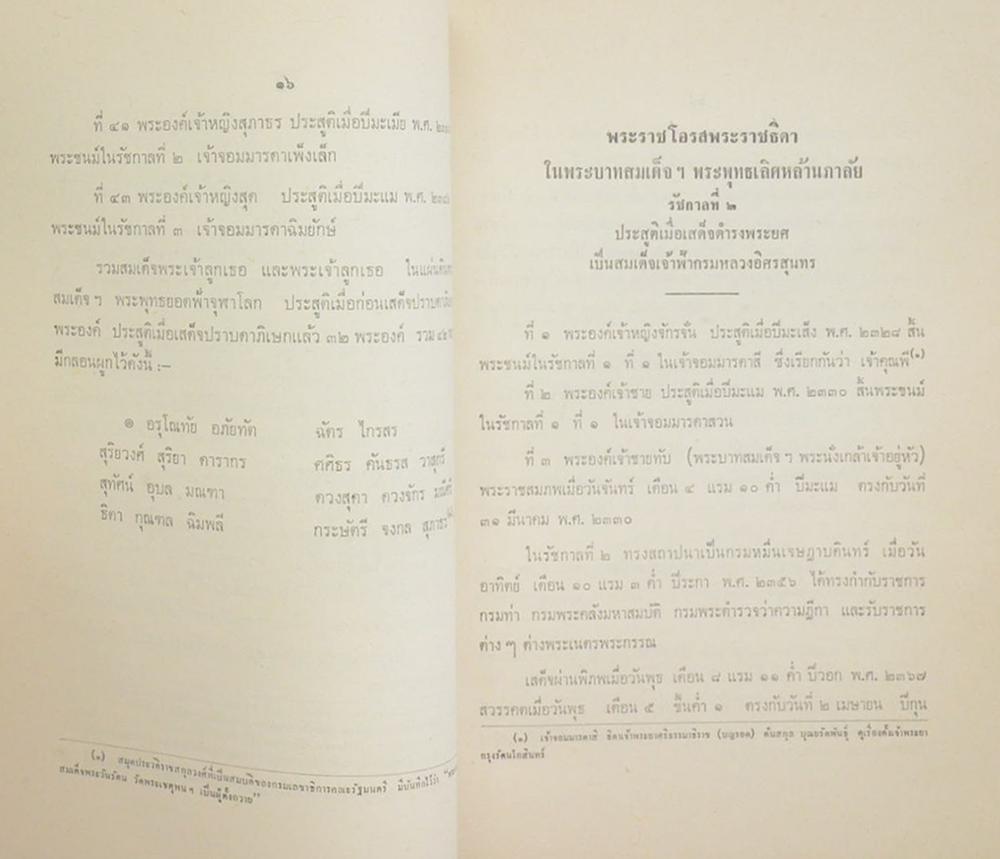 ๑๖
ที่ ๔๑ พระองค์เจ้าหญิงสุภาธร ประสูติเมื่อปีมะเมีย พ.ศ.
พระชนม์ในรัชกาลที่ ๒ เจ้าจอมมารดาเพ็งเล็ก
ที่ ๔๓ พระองค์เจ้าหญิงสุด ประสูติเมื่อปีมะแม พ.ศ.
พระชนม์ในรัชกาลที่ ๓ เจ้าจอมมารดาฉิมยักษ์
รวมสมเด็จพระเจ้าลูกเธอ และพระเจ้าลูกเธอ
สมเด็จ ฯ พระพุทธยอดฟ้าจุฬาโลก ประสูติเมื่อก่อนเสด็จปราบดา
พระองค์ ประสูติเมื่อเสด็จปราบดาภิเษกแล้ว ๓๒ พระองค์ รวม
มีกลอนผูกไว้ดังนี้ :–
๑ อรุโณทัย อภัยทัต ฉัตร ไกรสร
สุริยวงศ์ สุริยา ดารากร ศศิธร คันธรส วาสุกรี
สุทัศน์ อุบล มณฑา ดวงสุดา ดวงจักร
ธิดา กุณฑล ฉิมพลี กระษัตรี จงกล สุภาธร
(๑) สมุดประวัติราชสกุลวงศ์ที่เป็นสมบัติของกรมเลขาธิการคณะรัฐมนตรี มีบันทึกไว้ว่า
สมเด็จพระวันรัตน วัดพระเชตุพน ฯ เป็นผู้ตั้งถวาย”
พระราชโอรสพระราชธิดา
ในพระบาทสมเด็จ ฯ พระพุทธเลิศหล้านภาลัย
รัชกาลที่ ๒
ประสูติเมื่อเสด็จดำรงพระยศ
เป็นสมเด็จเจ้าฟ้ากรมหลวงอิศรสุนทร
ที่ ๑ พระองค์เจ้าหญิงจักรจั่น ประสูติเมื่อปีมะเส็ง พ.ศ. ๒๓๒๘ สิ้น
พระชนม์ในรัชกาลที่ ๑ ที่ ๑ ในเจ้าจอมมารดาสี ซึ่งเรียกกันว่า เจ้าคุณพี(๑)
ที่ ๒ พระองค์เจ้าชาย ประสูติเมื่อปีมะแม พ.ศ. ๒๓๓๐ สิ้นพระชนม์
ในรัชกาลที่ ๑ ที่ ๑ ในเจ้าจอมมารดาสวน
ที่ ๓ พระองค์เจ้าชายทับ (พระบาทสมเด็จ ฯ พระนั่งเกล้าเจ้าอยู่หัว)
พระราชสมภพเมื่อวันจันทร์ เดือน ๔ แรม ๑๐ ค่ำ ปีมะแม ตรงกับวันที่
๓๑ มีนาคม พ.ศ. ๒๓๓๐
ในรัชกาลที่ ๒ ทรงสถาปนาเป็นกรมหมื่นเจษฎาบดินทร์ เมื่อวัน
อาทิตย์ เดือน ๑๐ แรม ๓ ค่ำ ปีระกา พ.ศ. ๒๓๕๖ ได้ทรงกำกับราชการ
กรมท่า กรมพระคลังมหาสมบัติ กรมพระตำรวจว่าความฎีกา และรับราชการ
ต่าง ๆ ต่างพระเนตรพระกรรณ
เสด็จผ่านพิภพเมื่อวันพุธ เดือน ๘ แรม ๑๑ ค่ำ ปีวอก พ.ศ. ๒๓๖๗
สวรรคตเมื่อวันพุธ เดือน ๕ ขึ้นค่ำ ๑ ตรงกับวันที่ ๒ เมษายน ปีกุน
(๑) เจ้าจอมมารดาสี ธิดาเจ้าพระยาศรีธรรมาธิราช (บุญรอด) ต้นสกุล บุณยรัตพันธุ์ ดูเรื่องตั้งเจ้าพระยา
กรุงรัตนโกสินทร์